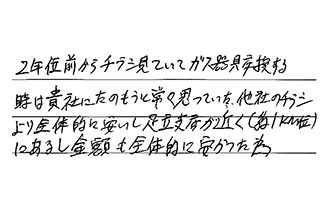 2年位前からチラシ見ていてガス器具交換する
時は貴社にたのもうと常々思っていた、他社のチラシ
より全体的に安いし足立支店が近く(約1km位)
にあるし金額も全体的に安かった為